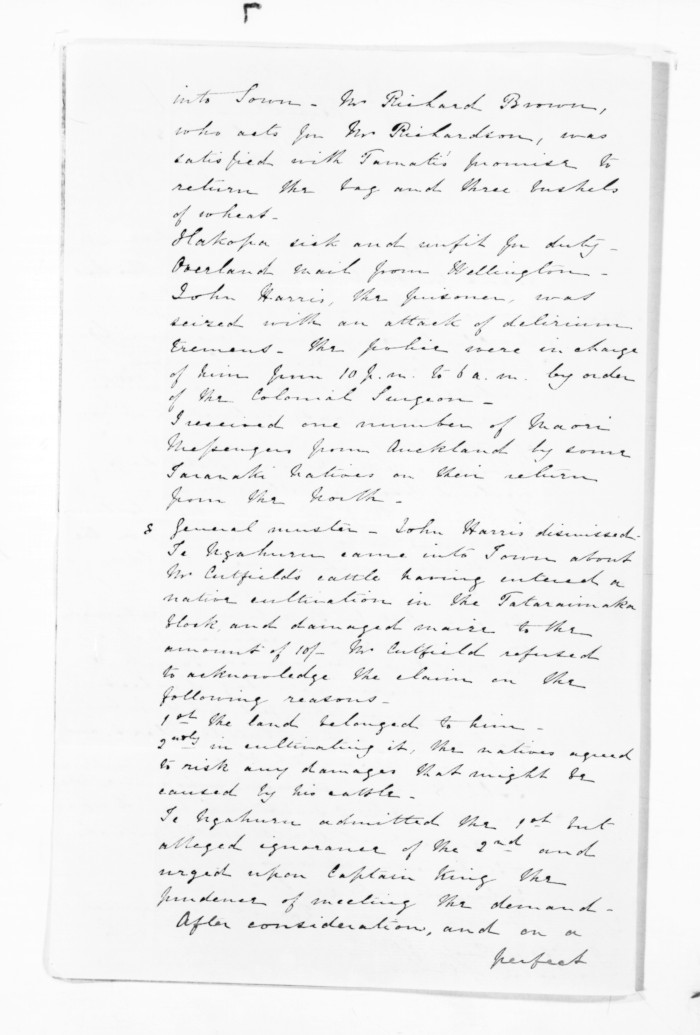 into Town - Mr Richard Brown,
who acts for Mr Richardson, was
satisfied with Tamati's promise to
return the bag and three bushels
of wheat -
Hakopa sick and unfit for duty -
Overland mail from Wellington -
John Harris, the prisoner, was
seized with an attack of delirium
tremens - The police were in charge
of him from 10 p.m. to 6 a.m. by order
of the Colonial Surgeon -
I received one number of Maori
Messengers from Auckland by some
Taranaki Natives on their return
from the North -
General muster - John Harris dismissed -
Te Ngahuru came into Town about
Mr Cutfields cattle having entered a
native cultivation in the Tataraimaka
block, and damaged maize to the
amount of 10/- Mr Cutfield refused
to acknowledge the claim on the
following reasons -
1st the land belonged to him -
2ndly in cultivating it, the natives agreed
to risk any damages that might be
caused by his cattle -
Te Ngahuru admitted the 1st but
alleged ignorance of the 2nd and
urged upon Captain King the
prudence of meeting the demand -
After consideration, and on a
perfect